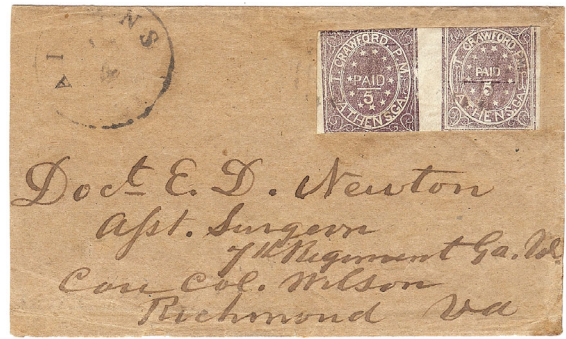 ATHENS
T. CRAWFORD, P.M.
PAID
5
ATHENS, GA.
T. CRAWFORD, P.M.
PAID
5
ATHENS, GA.
Doct. E. D. Newton
Asst. Surgeon
7th Regiment Ga. Vol.
Care Col. Wilson
Richmond Va